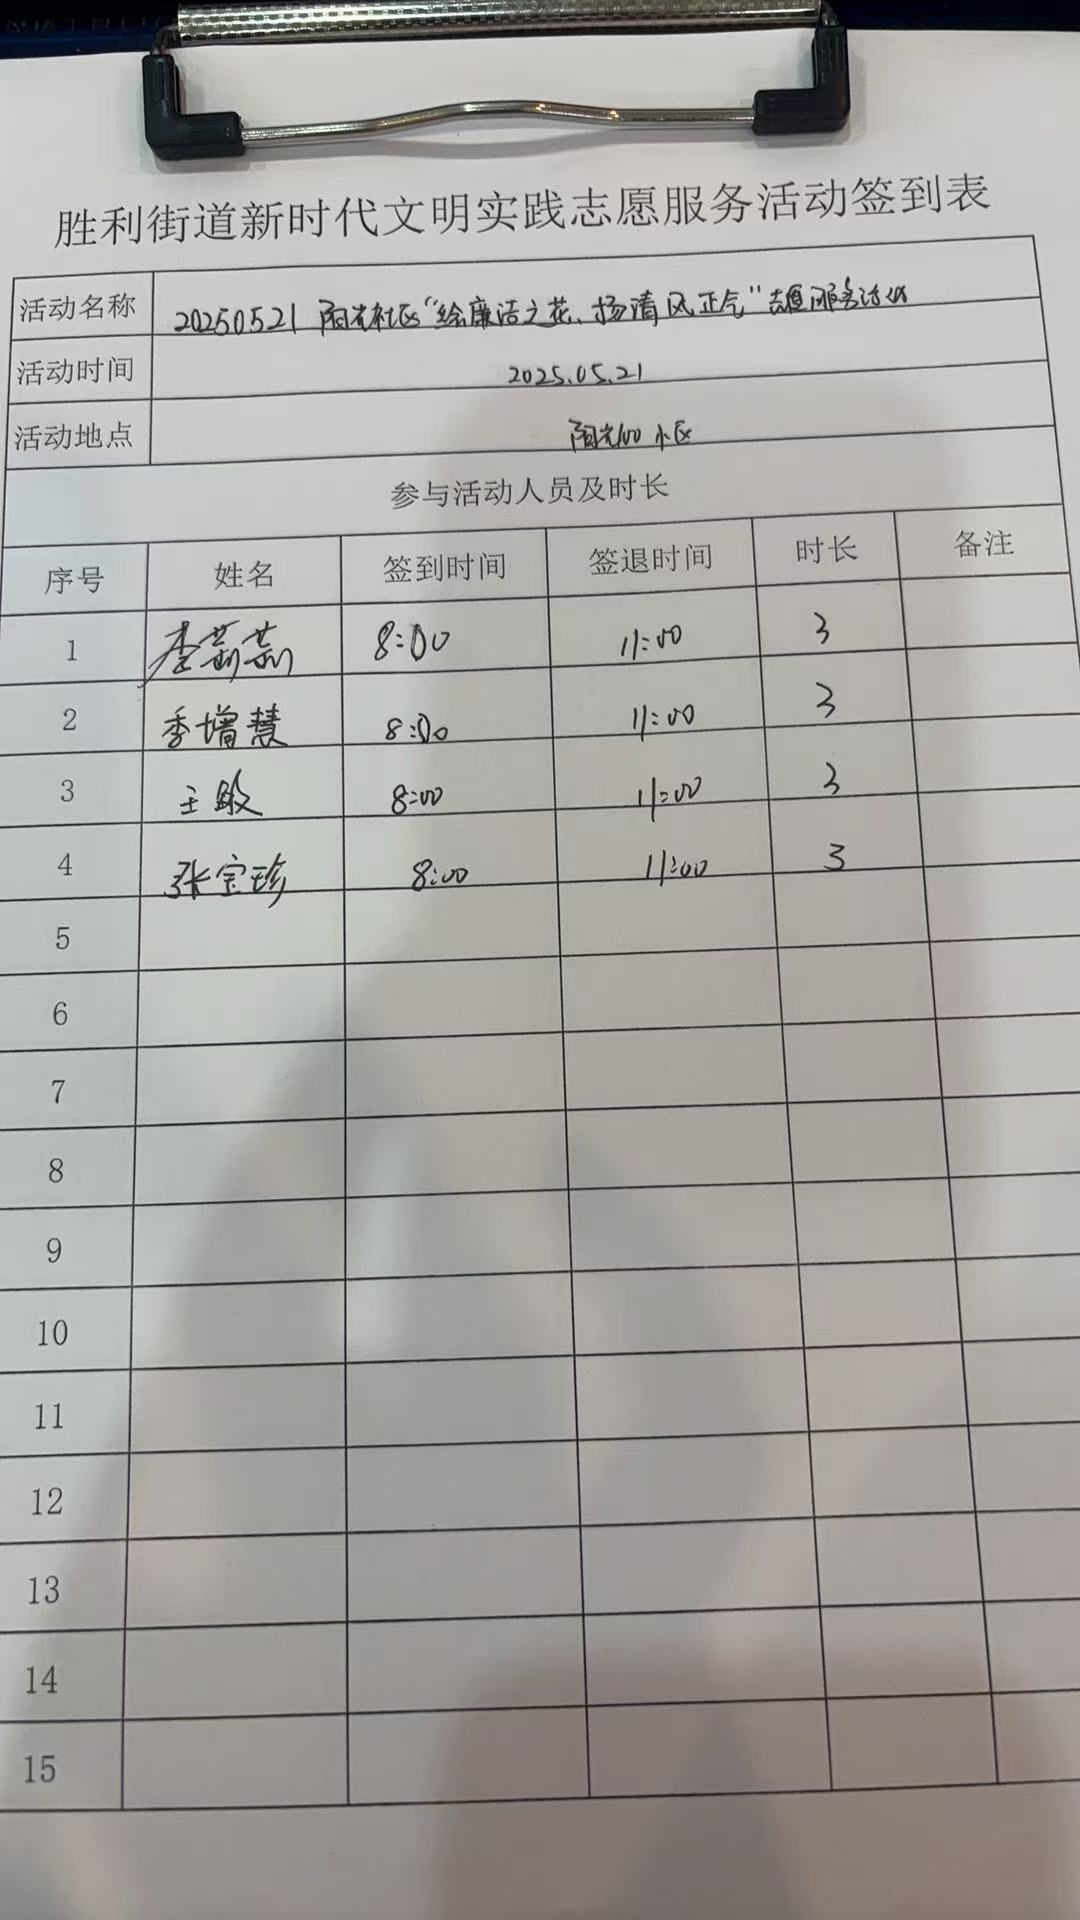 胜利街道新时代文明实践志愿服务活动签到表
活动名称 20250521 阳光社区“绘廉洁之花、扬清风正气”志愿服务活动
活动时间 2025.05.21
活动地点 阳光100小区
参与活动人员及时长
序号 姓名 签到时间 签退时间 时长 备注
1 李茹茹 8:00 11:00 3
2 季增慧 8:00 11:00 3
3 王敏 8:00 11:00 3
4 张宝珍 8:00 11:00 3
5
6
7
8
9
10
11
12
13
14
15